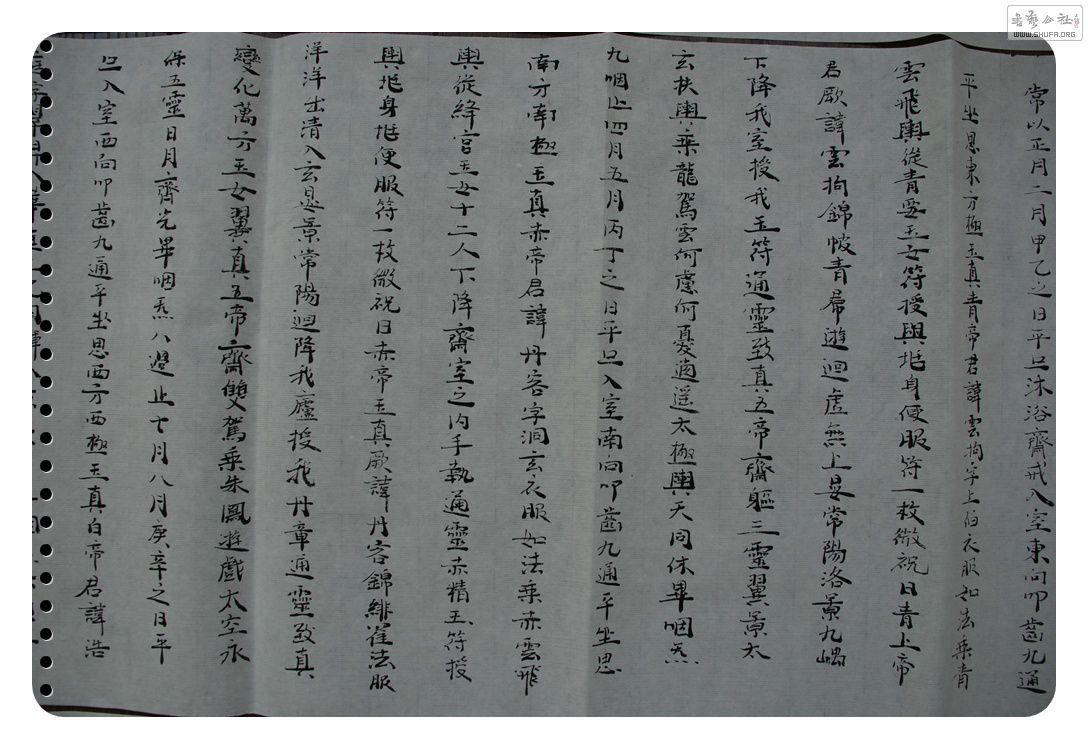 常以正月二月甲乙之日平旦沐浴齋戒入室東向叩齒九通
平坐思東方極玉真青帝君諱雲拘字上伯衣服如法乘青
雲飛輿從青要玉女符授與㐌身便服符一枚微祝曰青上帝
君厥諱雲拘錦帔青帬遊迴虛無上晏常陽洛景九嵎
下降我室授我玉符通靈致真五帝齊軀三靈翼景太
玄扶輿乘龍駕雲何慮何憂逍遥太極與天同休畢咽炁
九咽止四月五月丙丁之日平旦入室南向叩齒九通平坐思
南方南極玉真赤帝君諱丹容字洞玄衣服如法乘赤雲飛
輿從絳宮玉女十二人下降齋室之内手執通靈赤精玉符授
與㐌身㐌便服符一枚微祝曰赤帝玉真厥諱丹容錦緋羅法服
洋洋出清入玄晏景常陽迴降我廬授我丹章通靈致真
變化萬方玉女翼真五帝齊雙駕乘朱鳳遊戲太空永
保五靈日月齊光畢咽炁八過止七月八月庚辛之日平
旦入室西向叩齒九通平坐思西方西極玉真白帝君諱浩